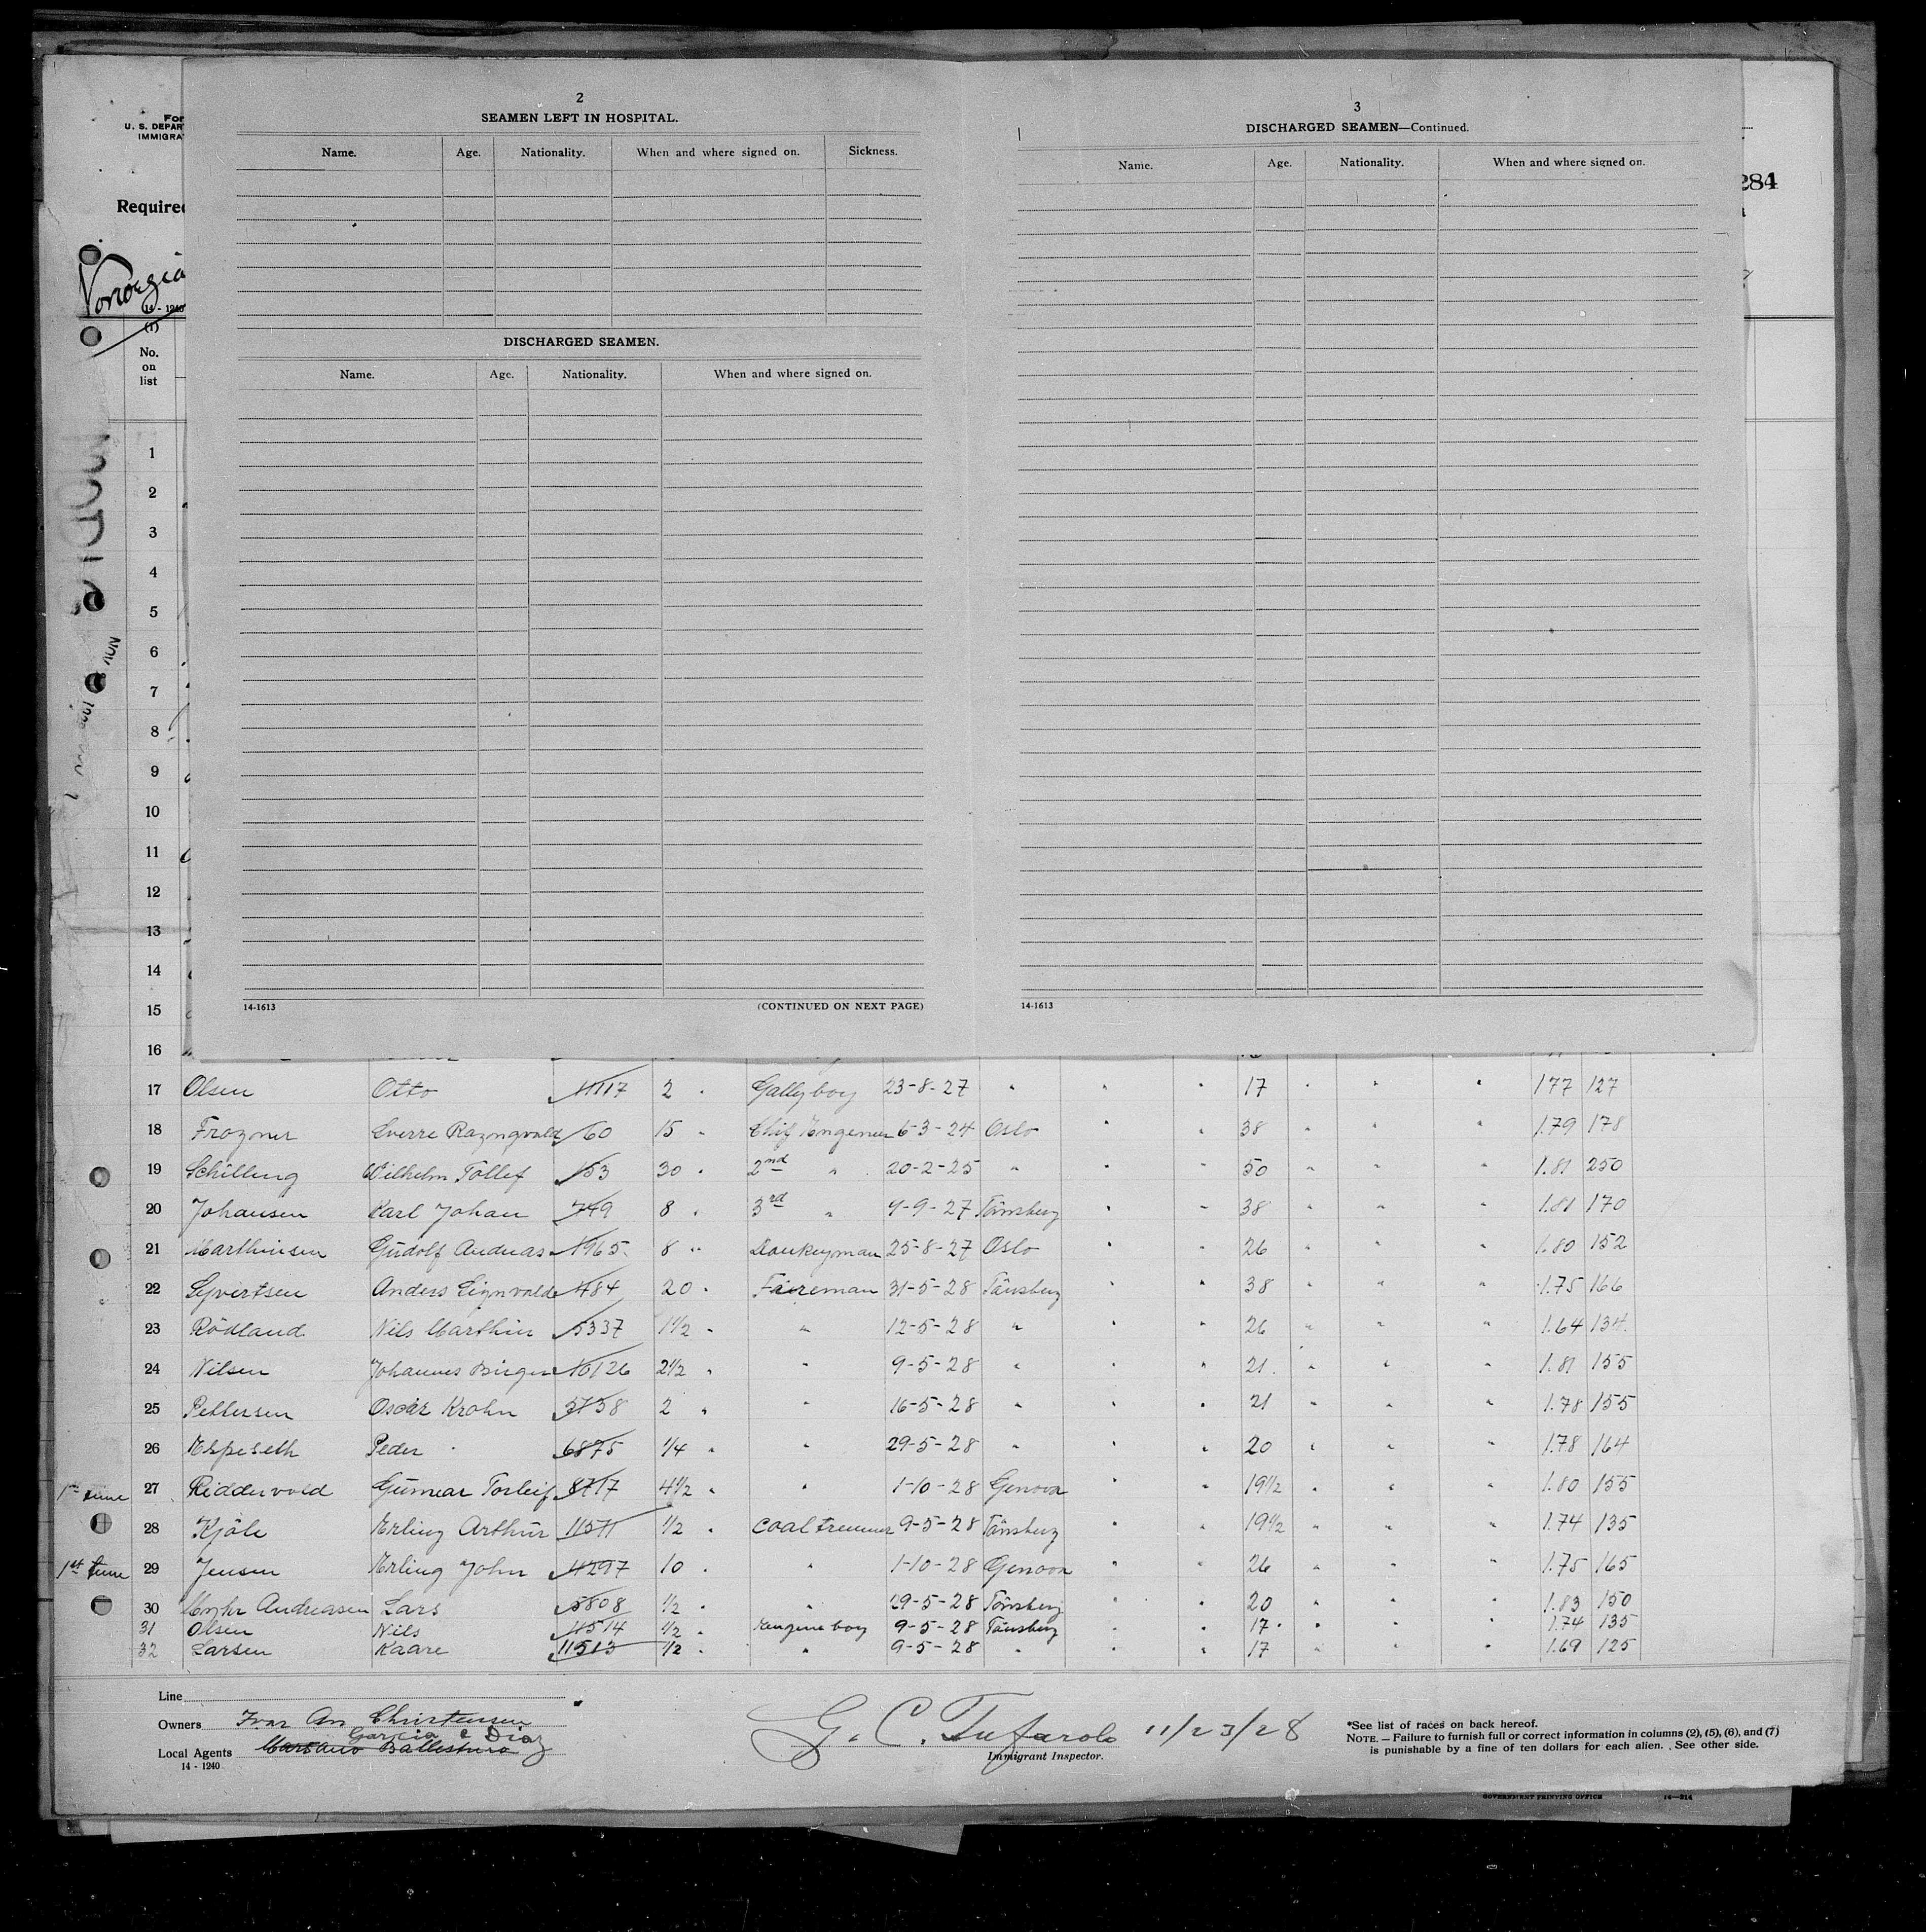 2
SEAMEN LEFT IN HOSPITAL.
Name. Age. Nationality. When and where signed on. Sickness.
DISCHARGED SEAMEN.
Name. Age. Nationality. When and where signed on.
14-1613 (CONTINUED ON NEXT PAGE)
3
DISCHARGED SEAMEN—Continued.
Name. Age. Nationality. When and where signed on.
14-1613
For
U. S. DEPAR
IMMIGRA
Required
284
Norwegia
14 - 1240
(1)
No.
on
list
1
2
3
4
5
6
7
8
9
10
11
12
13
14
15
16
17 Olsen Otto 11117 2 " Gallyboy 23-8-27 " " " 17 " " " 177 127
18 Frozner Sverre Razngvald 60 15 " Chif Engeneer 6-3-24 Oslo " " 38 " " " 1.79 178
19 Schilling Wilhelm Tollef 153 30 " 2nd " 20-2-25 " " " 50 " " " 1.81 250
20 Johansen Karl Johan 749 8 " 3rd " 9-9-27 Tönsberg " " 38 " " " 1.81 170
21 Marthinsen Gudolf Andreas 1965 8 " Donkeyman 25-8-27 Oslo " " 26 " " " 1.80 152
22 Syvertsen Anders 1184 20 " Faireman 31-5-28 Tönsberg " " 38 " " " 1.75 166
23 Rödland Nils Marthin 5337 1 1/2 " " 12-5-28 " " " 26 " " " 1.64 134
24 Nilsen Johannes Birger 10126 2 1/2 " " 9-5-28 " " " 21 " " " 1.81 155
25 Pettersen Oscar Krohn 3738 2 " " 16-5-28 " " " 21 " " " 1.78 155
26 Espeseth Peder 6875 1/4 " " 29-5-28 " " " 20 " " " 1.78 164
1st time 27 Riddervold Gunnar Torleif 8717 4 1/2 " " 1-10-28 Genova " " 19 1/2 " " " 1.80 155
28 Kjöle Erling Arthur 11511 1/2 " Coaltremmer 9-5-28 Tönsberg " " 19 1/2 " " " 1.74 135
1st time 29 Jensen Erling John 4297 10 " " 1-10-28 Genova " " 26 " " " 1.75 165
30 Myhr Andreasen Lars 5808 1/2 " " 29-5-28 Tönsberg " " 20 " " " 1.83 150
31 Olsen Nils 11514 1/2 " Engine boy 9-5-28 Tönsberg " " 17 " " " 1.74 135
32 Larsen Kaare 11513 1/2 " " 9-5-28 " " " 17 " " " 1.69 125
Line
Owners Ivar An Christensen
Garcia & Diaz
Local Agents
14 - 1240
G. C. Tufarolo 11/23/28
Immigrant Inspector.
*See list of races on back hereof.
NOTE. — Failure to furnish full or correct information in columns (2), (5), (6), and (7)
is punishable by a fine of ten dollars for each alien. See other side.
GOVERNMENT PRINTING OFFICE 14—214